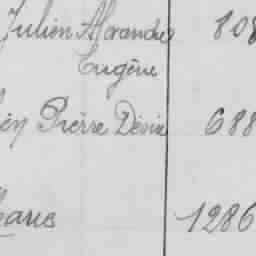 Julien Alexandre 808
Eugène
Pierre Désiré 688
1286